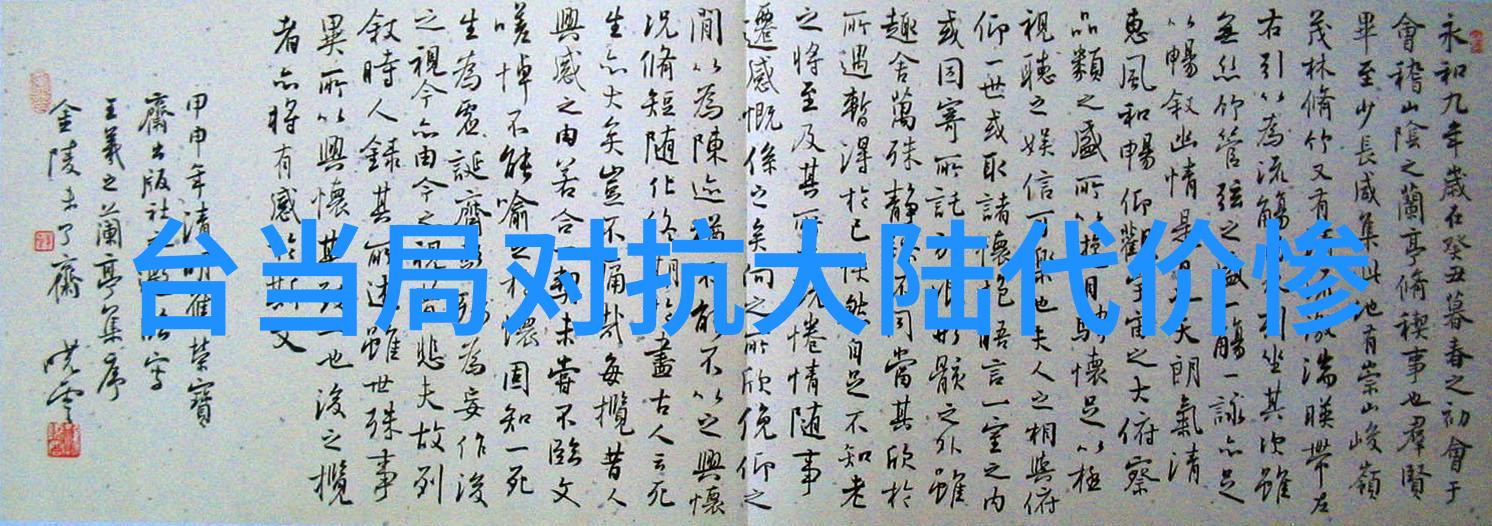 台当局对抗大陆代价惨
永和九年歲在癸丑暮春之初會于
會稽山陰之蘭亭脩稧事也羣賢
畢至少長咸集此地有崇山峻嶺
茂林脩竹又有清流激湍暎帶左
右引以為流觴曲水列坐其次雖
無絲竹管弦之盛一觴一詠亦足
以暢叙幽情是日也天朗氣清
惠風和暢仰觀宇宙之大俯察
品類之盛所以遊目騁懷足以極
視聽之娛信可樂也夫人之相與俯
仰一世或取諸懷抱悟言一室之內
或因寄所託放浪形骸之外雖
趣舍萬殊靜躁不同當其欣於
所遇暫得於己怏然自足不知老
之將至及其所之既惓情隨事
遷感慨係之矣向之所欣俛仰之
閒以為陳迹猶不能不以之興懷
況脩短隨化終期於盡古人云死
生亦大矣豈不痛哉每攬昔人
興感之由若合一契未嘗不臨文
嗟悼不能喻之於懷固知一死
生為虛誕齊彭殤為妄作後
之視今亦由今之視昔悲夫故列
叙時人錄其所述雖世殊事
異所以興懷其致一也後之攬
者亦將有感於斯文
甲申年清明 榮寶
齋出版社
王羲之蘭亭集序
金陵未了齋